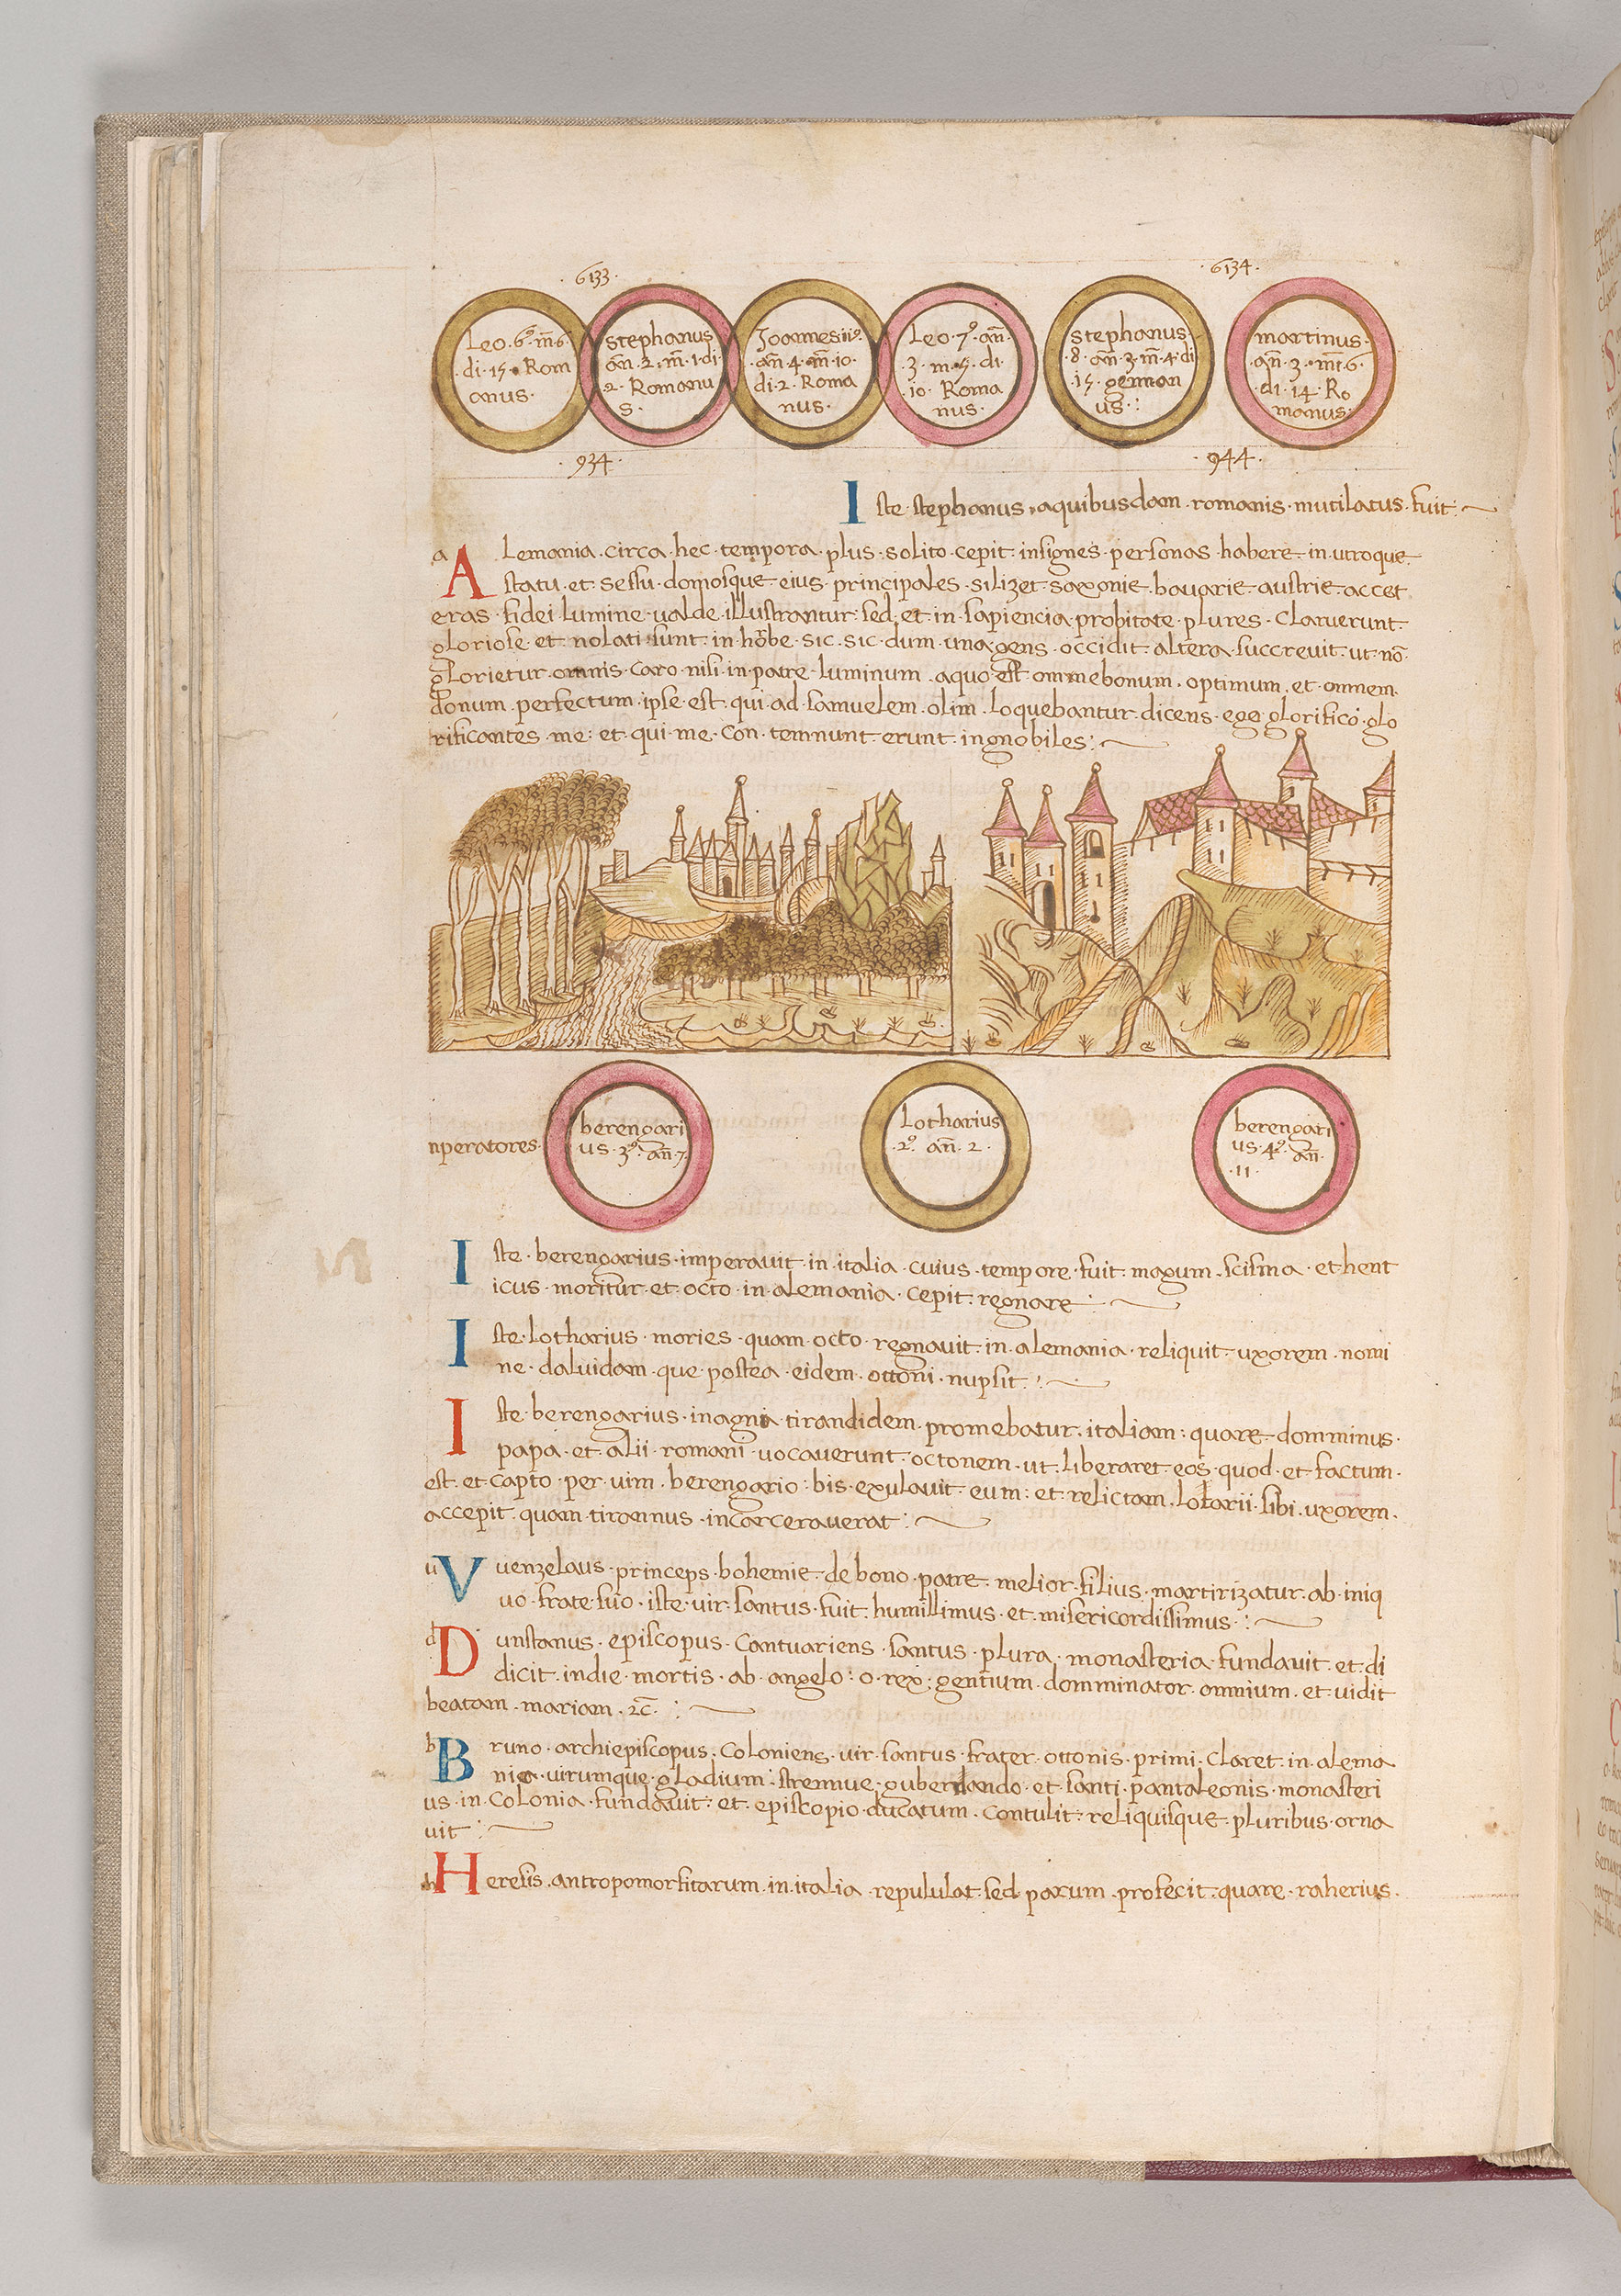 ·6133·
·6134·
Leo·6⁹·m̄·6·
di·15·Rom
anus·
stephanus
añ·2·m̄·1·di·
2·Romanu
s·
Joannes iiⁱ⁹·
·añ·4·m̄·10·
di·2·Roma
nus·
Leo·7⁹·añ·
·3·m·5·di·
·10·Roma
nus·
stephanus·
·8·añ·3·m̄·4·di
·15·german
us·:
martinus·
·añ·3·m̄·6·
·di·14·Ro
manus·
·934·
·944·
Iste·stephanus·aquibusdam·romanis·mutilatus·fuit:
a
ALemania·circa·hec·tempora·plus·solito·cepit·insignes·personas·habere·in·utroque·
statu·et·sessu·domosque·eius·principales·silizet·saxonie·bauarie·austrie·accet
eras·fidei·lumine·ualde·illustrantur·sed·et·in·sapiencia·probitate·plures·claruerunt·
gloriose·et·nolati·sunt·in·hõbe·sic·sic·dum·una·gens·occidit·altera·succreuit·ut·nō·
glorietur·omnis·caro·nisi·in·patre·luminum·aquo·est·omnebonum·optimum·et·omnem·
donum·perfectum·ipse·est·qui·ad·samuelem·olim·loquebantur·dicens·ego·glorifico·glo
rificantes·me:et·qui·me·con·temnunt·erunt·ingnobiles:
nperatores·
berengari
us·3⁹·añ·7·
Lotharius
·2⁹·añ·2·
berengari
us·4⁹·añ·
·11·
Iste·berengarius·imperauit·in·italia·cuius·tempore·fuit·magum·scisma·et hent
icus·moritur·et·octo·in·alemania·cepit·regnare:
Iste·Lotharius·mories·quam·octo·regnauit·in·alemania·reliquit·uxorem·nomi
ne·daluidam·que·postea·eidem·ottoni·nupsit:
Iste·berengarius·inagnia·tirandidem·promebatur·italiam:quare·domminus·
papa·et·alii·romani·uocauerunt·octonem·ut·liberaret·eos·quod·et·factum·
est·et·capto·per·uim·berengario:bis·exulauit·eum:et·relictam·lotarii·sibi·uxorem·
accepit·quam·tirannus·incarcerauerat:
u
Vuenzelaus·princeps·bohemie·de bono·patre·melior·filius·martirizatur·ab·iniq
uo·frate·suo·iste·uir·santus·fuit·humillimus·et·misericordissimus:
d
Dunstanus·episcopus·Cantuariens·santus·plura·monasteria·fundauit·et·di
dicit·indie·mortis·ab·angelo:o·rex:gentium·domminator·omnium·et·uidit
beatam·mariam·⁊c̄·:
b
Bruno·archiepiscopus·Coloniens·uir·santus·frater·ottonis·primi·claret·in·alema
nia·uirumque·gladium:strennue·gubernando·et·santi·pantaleonis·monasteri
us·in·Colonia·fundauit:et·episcopio·ducatum·contulit:reliquisque·pluribus·orna
uit:
h
Heresis·antropomorfitarum·in·italia·repululat·sed·parum·profecit·quare·raherius·